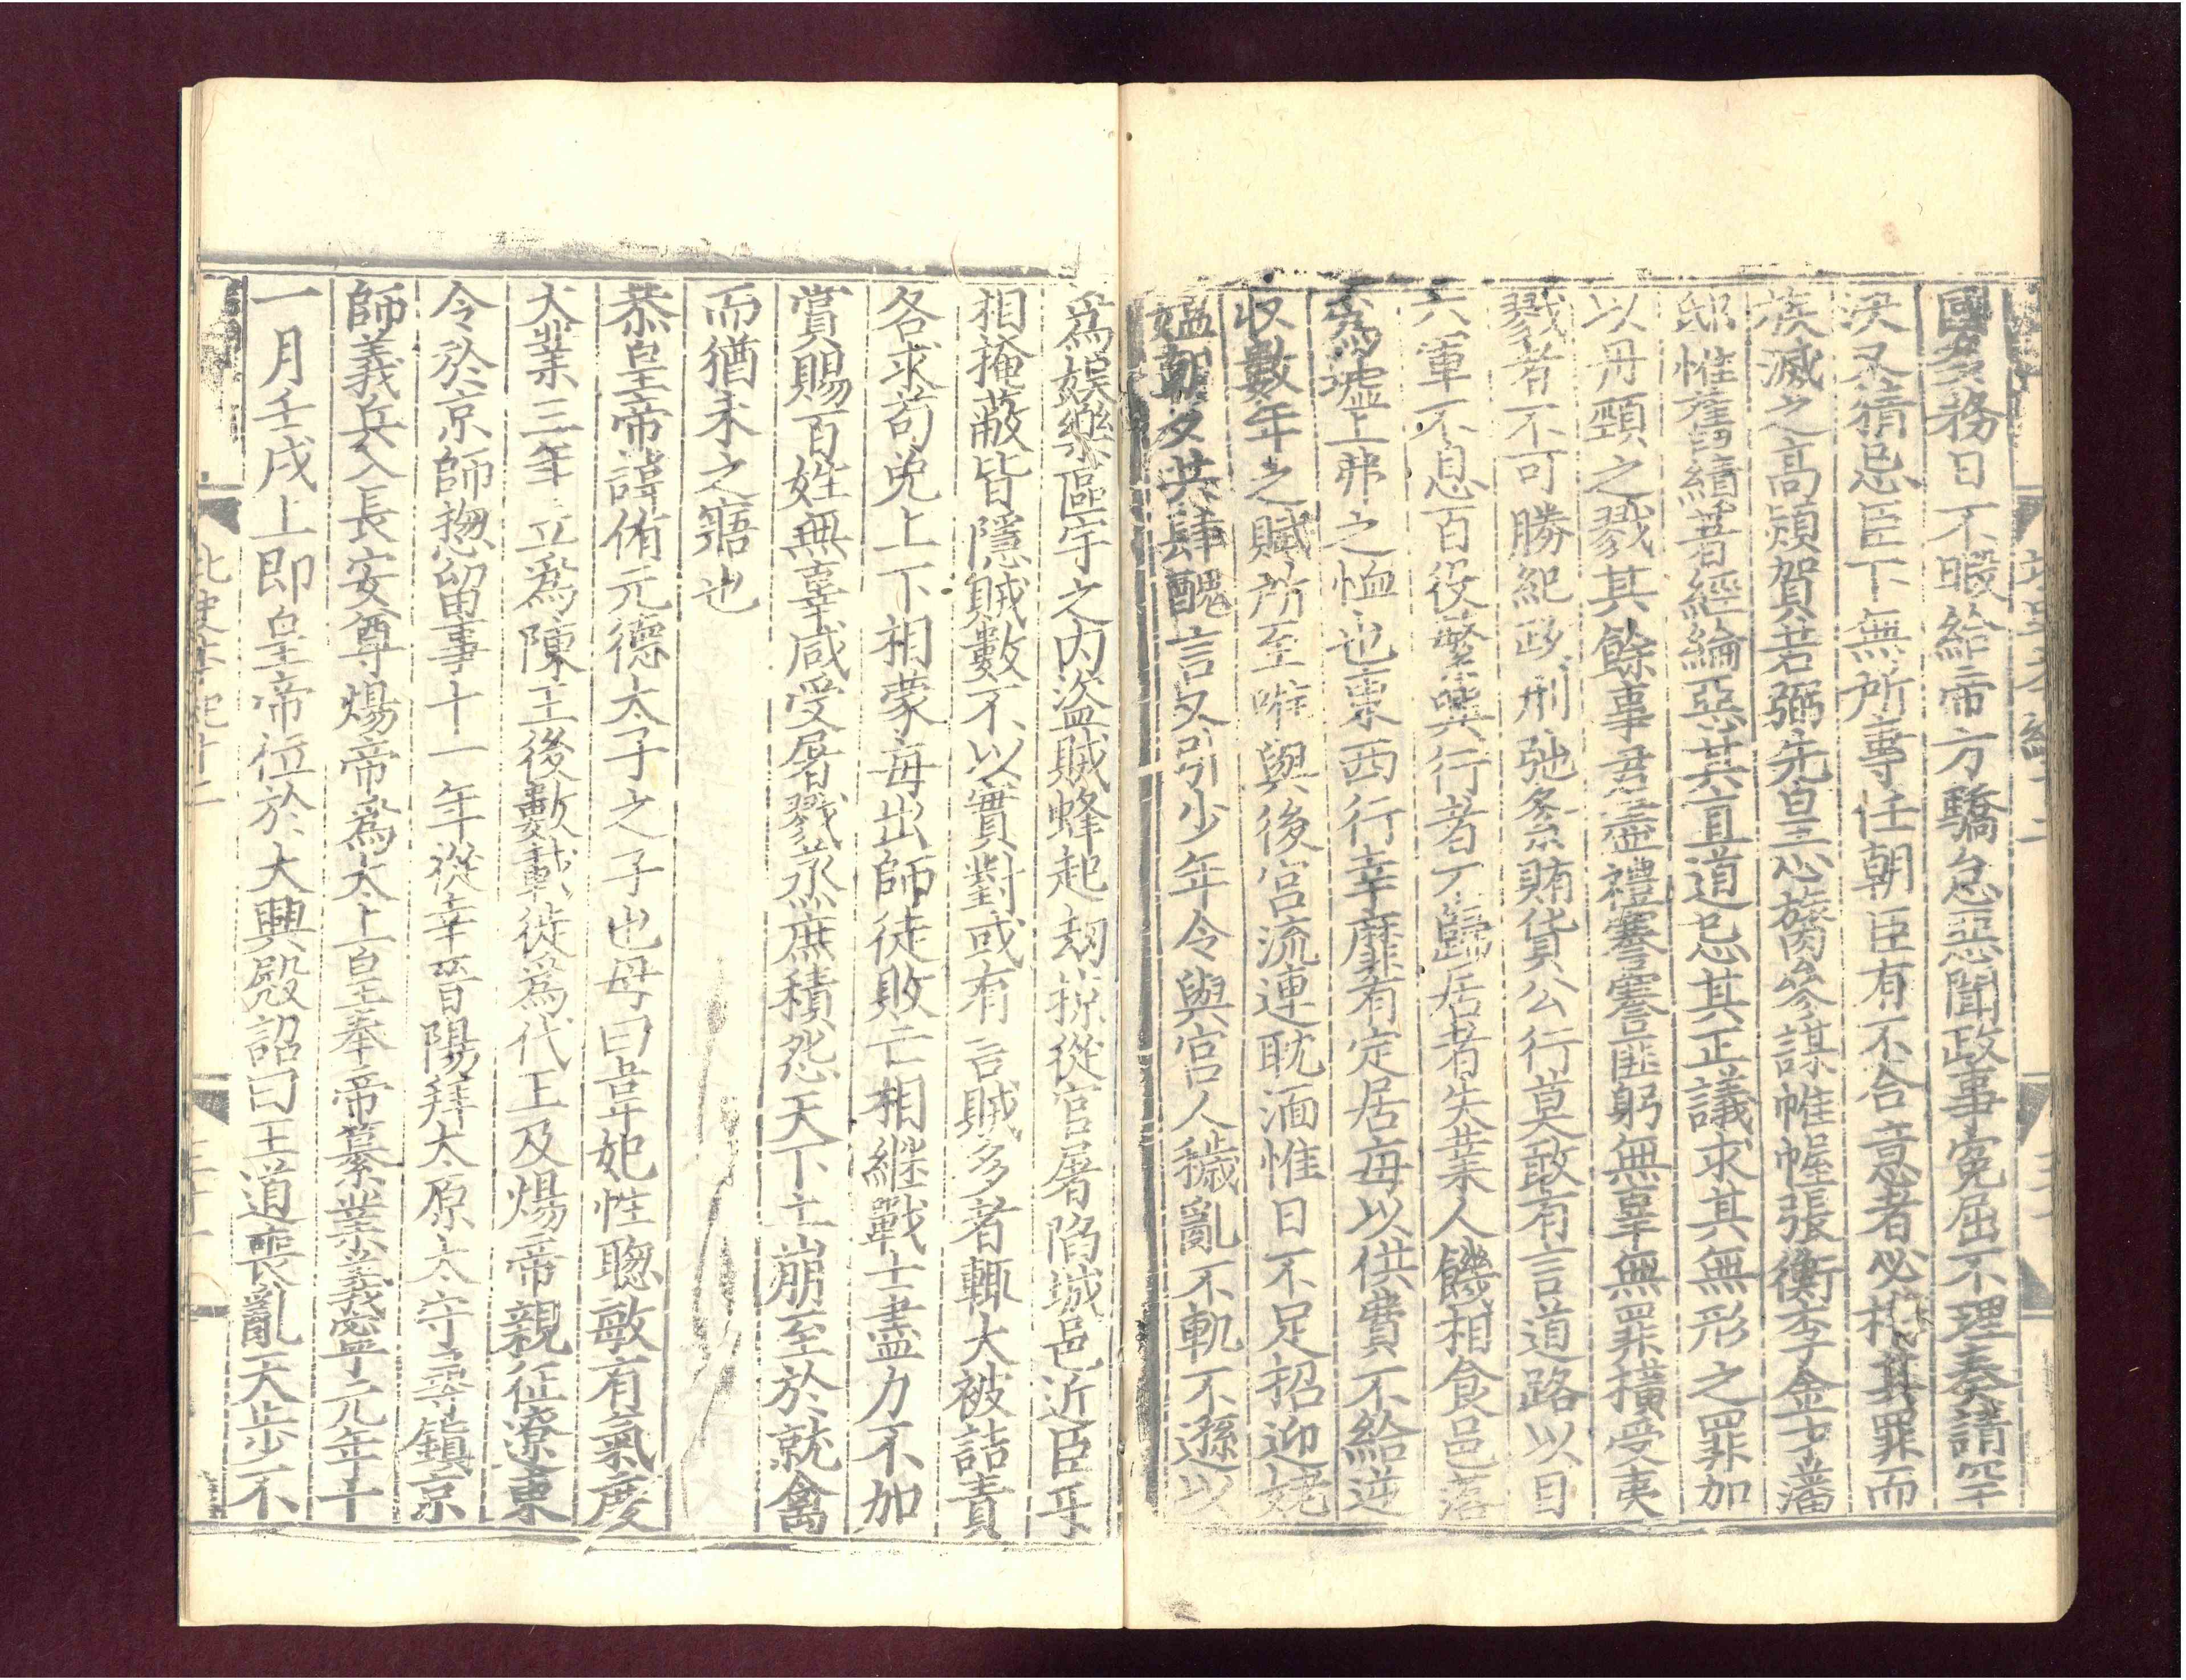 國多務日不暇給帝方驕怠惡聞政事寃屈不理奏請罕
决又猜忌臣下無所專任朝臣有不合意者必構其罪而
族滅之高熲賀若弼先皇心膂參謀帷幄張衡李金才藩
邸惟舊績著經綸惡其直道忌其正議求其無形之罪加
以丹頸之戮其餘事君盡禮謇謇匪躬無辜無罪橫受夷
戮者不可勝紀政刑弛紊賄貨公行莫敢有言道路以目
六軍不息百役繁興行者不歸居者失業人饑相食邑落
爲墟上弗之恤也東西行幸靡有定居每以供費不給逆
收數年之賦所至唯與後宮流連耽湎惟日不足招迎姥
媼朝夕共肆醜言又引少年令與宮人穢亂不軌不遜以
爲娛樂區宇之內盜賊蜂起刼掠從官屠陷城邑近臣互
相掩蔽皆隱賊數不以實對或有言賊多者輒大被詰責
各求苟免上下相蒙每出師徒敗亡相繼戰士盡力不加
賞賜百姓無辜咸受屠戮蒸庶積怨天下土崩至於就禽
而猶未之寤也
恭皇帝諱侑元德太子之子也母曰韋妃性聰敏有氣度
大業三年立爲陳王後數載徙爲代王及煬帝親征遼東
令於京師揔留事十一年從幸晉陽拜太原太守尋鎮京
師義兵入長安尊煬帝爲太上皇奉帝纂業義寧元年十
一月壬戌上即皇帝位於大興殿詔曰王道喪亂天步不
北史本紀十二